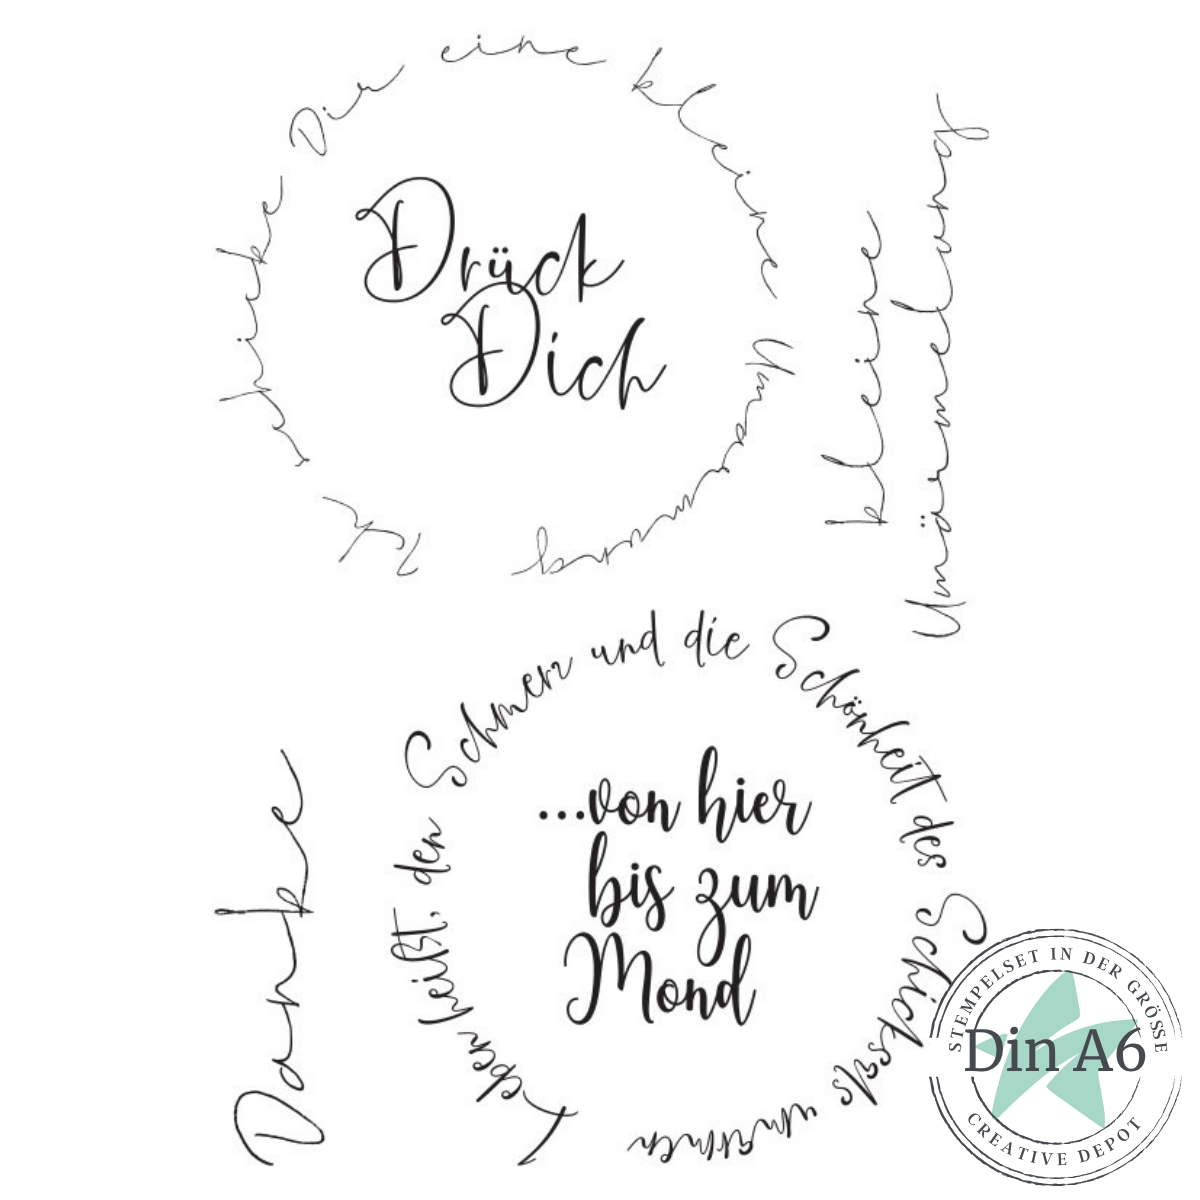 Ich schicke Dir eine kleine Umarmung
Drück
Dich
kleine
Umärmelung
Leben heißt, den Schmerz und die Schönheit des Schicksals umarmen
...von hier
bis zum
Mond
Danke
STEMPELSET IN DER GRÖSSE
Din A6
CREATIVE DEPOT